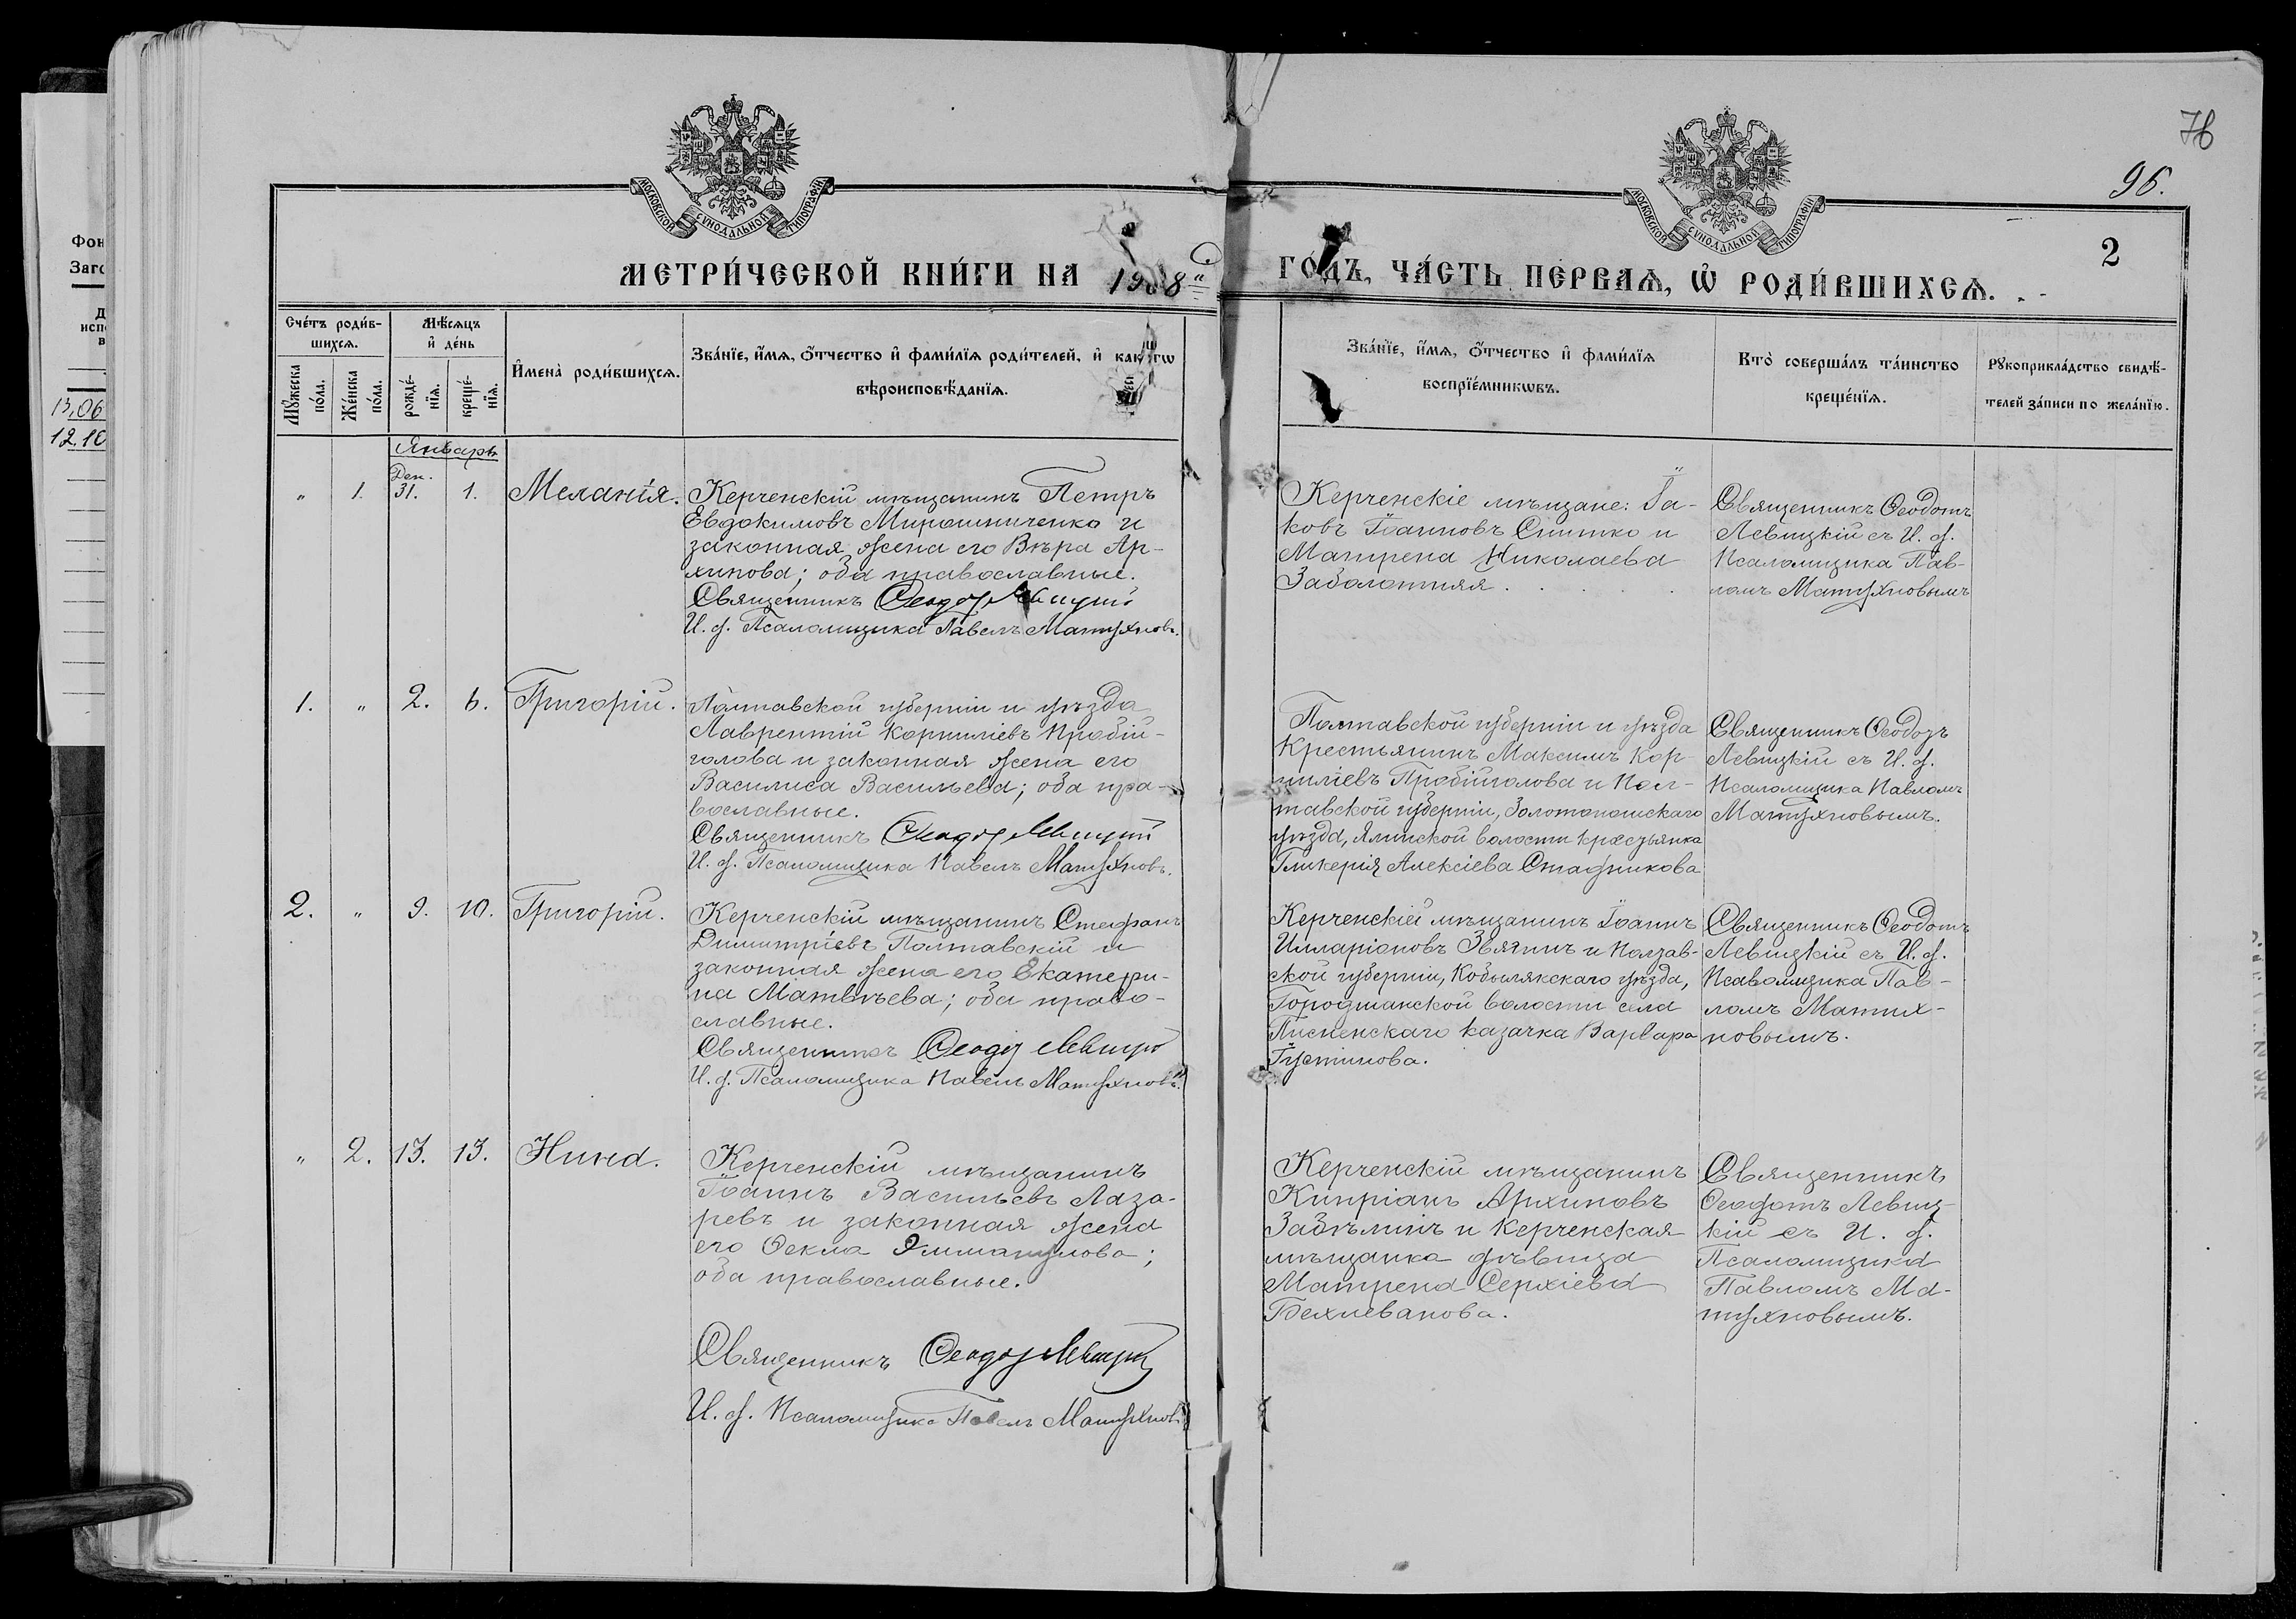 76
96.
2
МОСКОВСКОЙ СѴНОДАЛЬНОЙ ТИПОГРАФІИ
МОСКОВСКОЙ СѴНОДАЛЬНОЙ ТИПОГРАФІИ
МЕТРИ́ЧЕСКОЙ КНИ́ГИ НА 1908й ГО́ДЪ, ЧА́СТЬ ПЕ́РВАѦ, Ѡ҆ РОДИ́ВШИХСѦ.
Сче́тъ роди́в-
шихсѧ.
Мѣ́сѧцъ
и҆ де́нь
Мꙋ́жеска
по́ла.
Же́нска
по́ла.
рожде́-
нїѧ.
креще́-
нїѧ.
И҆мена̀ роди́вшихсѧ.
Зва́нїе, и҆́мѧ, ѻ҆́тчество и҆ фами́лїѧ роди́телей, и҆ како́гѡ
вѣроисповѣ́данїѧ.
Зва́нїе, и҆́мѧ, ѻ҆́тчество и҆ фами́лїѧ
воспрїе́мникѡвъ.
Кто̀ соверша́лъ та́инство
креще́нїѧ.
Рꙋкоприкла́дство свидѣ́-
телей за́писи по жела́нїю.
Фон
Заго
13,06
12.10
Январь
" 1. Дек. 31. 1. Меланія.
Керченскій мѣщанинъ Петръ
Евдокимовъ Мирошниченко и
законная жена его Вѣра Ар-
хипова; оба православные.
Священникъ Ѳеодотъ Левицкій
И. д. Псаломщика Павелъ Матухновъ.
Керченскіе мѣщане: Іа-
ковъ Іоанновъ Снитко и
Матрена Николаева
Заболотняя . . . .
Священникъ Ѳеодотъ
Левицкій съ И. д.
Псаломщика Пав-
ломъ Матухновымъ
1. " 2. 6. Григорій.
Полтавской губерніи и уѣзда
Лаврентій Корниліевъ Пробій-
голова и законная жена его
Василиса Васильева; оба пра-
вославные.
Священникъ Ѳеодотъ Левицкій
И. д. Псаломщика Павелъ Матухновъ.
Полтавской губерніи и уѣзда
Крестьянинъ Максимъ Кор
ниліевъ Пробійголова и Пол-
тавской губерніи, Золотоношскаго
уѣзда, волости крестьянка
Гликерія Алексіева Стадникова
Священникъ Ѳеодотъ
Левицкій съ И. д.
Псаломщика Павломъ
Матухновымъ.
2. " 9. 10. Григорій.
Керченскій мѣщанинъ Стефанъ
Димитріевъ Полтавскій и
законная жена его Екатери-
на Матвѣева; оба право-
славные.
Священникъ Ѳеодотъ Левицкій
И. д. Псаломщика Павелъ Матухновъ.
Керченскій мѣщанинъ Іоаннъ
Илларіоновъ Звягинъ и Полтав-
ской губерніи, Кобылякскаго уѣзда,
волости села
казачка Варвара
Іустинова.
Священникъ Ѳеодотъ
Левицкій съ И. д.
Псаломщика Пав-
ломъ Матух-
новымъ.
" 2. 13. 13. Нина.
Керченскій мѣщанинъ
Іоаннъ Васильевъ Лаза-
ревъ и законная жена
его Ѳекла Эммануилова;
оба православные.
Священникъ Ѳеодотъ Левицкій
И. д. Псаломщика Павелъ Матухновъ
Керченскій мѣщанинъ
Кипріанъ Архиповъ
Забѣлинъ и Керченская
мѣщанка дѣвица
Матрена Сергіева
Священникъ
Ѳеодотъ Левиц-
кій съ И. д.
Псаломщика
Павломъ Ма-
тухновымъ.